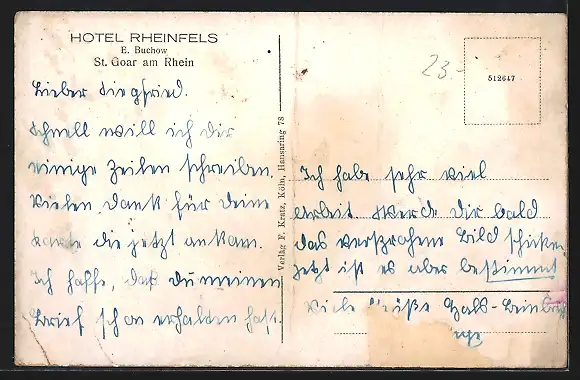 HOTEL RHEINFELS
E. Buchow
St. Goar am Rhein
Lieber Siegfried.
Schnell will ich dir
einige Zeilen schreiben.
Vielen Dank für deine
Karte die jetzt ankam.
Ich hoffe, daß du meinen
Brief schon erhalten hast.
Verlag F. Kratz, Köln, Hansaring 78
23.-
512647
Ich habe sehr viel
Arbeit. Werde Dir bald
das versprochene Bild schicken
jetzt ist es aber bestimmt
Viele Grüße